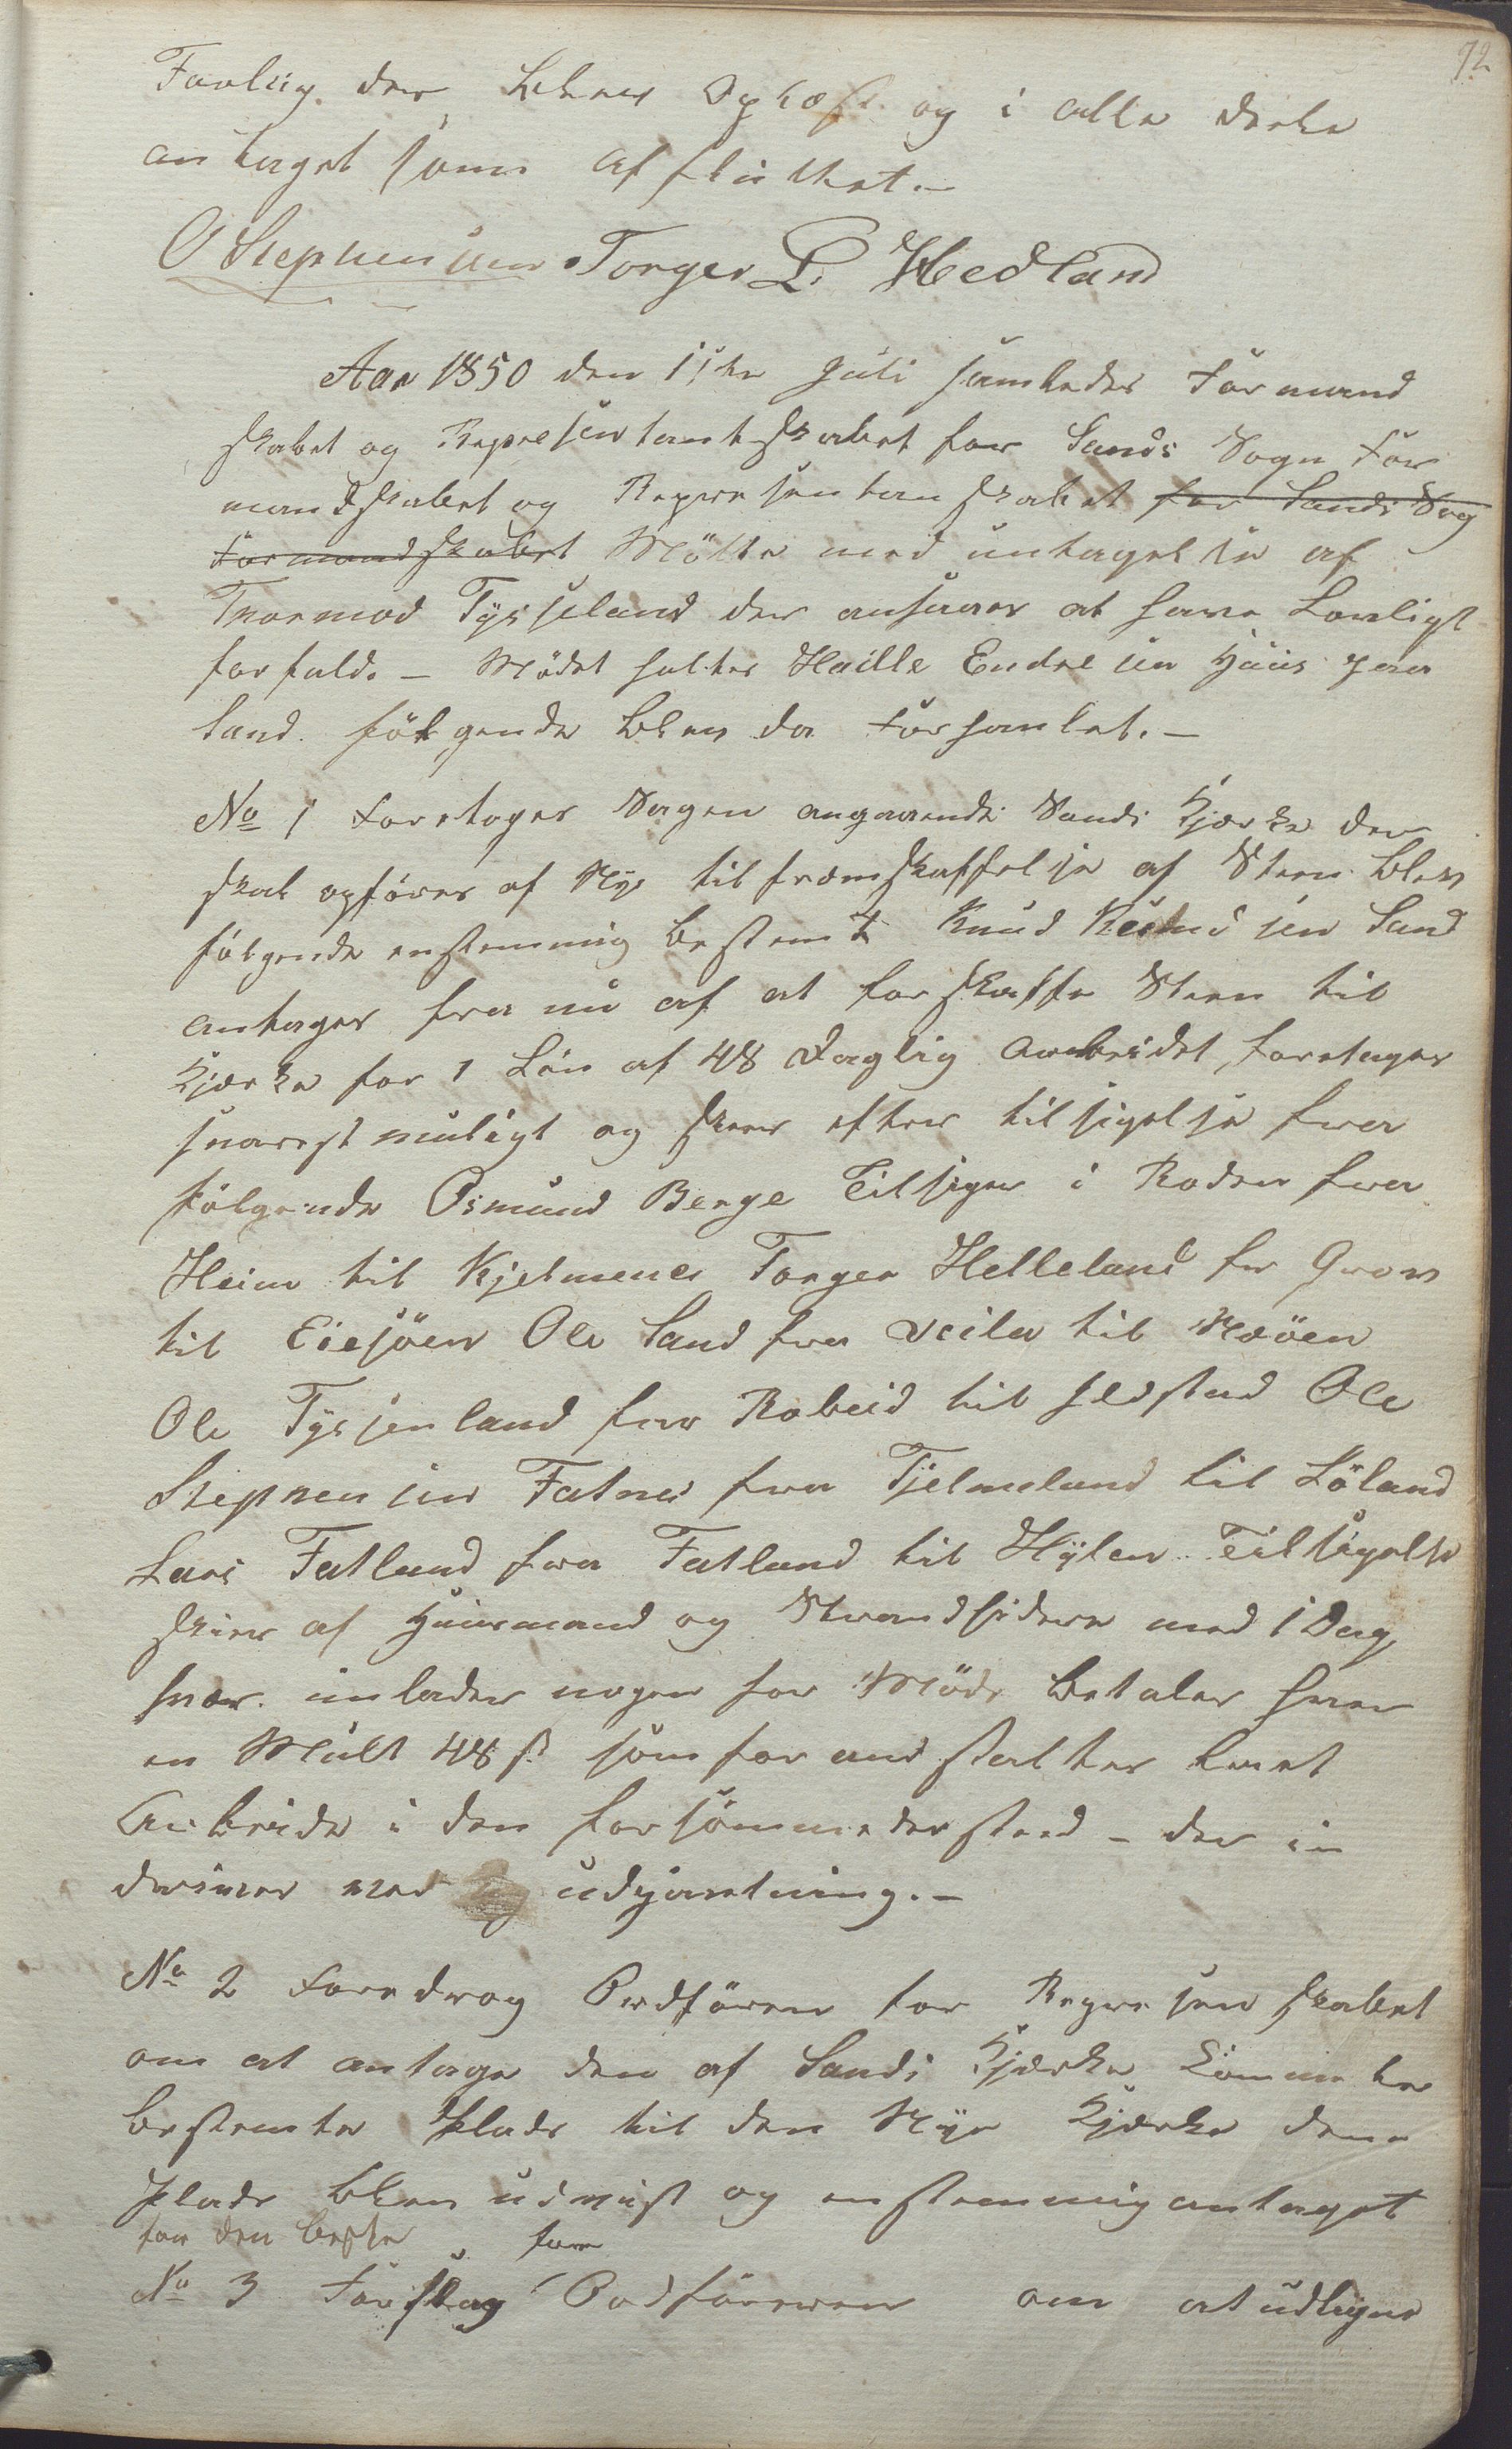 72
Forlig der blev Ophæft og i alle deele
antaget som afsluttet. –
O Stephensen Torger L. Hedland
Aar 1850 den 1ste Juli samledes Formand
skabet og Represjentantskabet for Sands Sogn For
mandskabet og Represjentanskabet for Sands Sog
Formandskabet Mötte med untagelse af
Thormod Tysseland der ansaaes at have Lovligt
forfald. – Mödet holtes Haille Endresen Huus paa
Sand følgende blev da Forhanlet. –
No 1 Foretoges Sagen angaaende Sands Kjærke der
skal opföres af Nye til fremskaffelse af Steen blev
fölgende enstemmig bestemt Knud Knudsen Sand
antages fra nu af at forskaffe Steen til
Kjærke for 1 Lön af 48 Daglig arbeidet foretages
snarest muligt og skeer efter tilsigelse fra
fölgende Osmund Berge Tilsiger i Roden fra
Heim til Kjelmenes Torger Helleland fra Grov
til Eiesjöen Ole Sand fra Veila til Moöen
Ole Tysjenland fra Robeid til Hedstad Ole
Stephensen Fatnes fra Tjelmeland til Löland
Lars Fatland fra Fatland til Hylen Tilsigelse
skier af Huusmand og Strandsidere med 1 Dag
hver. unlader nogen for Möde betaler han
en Mult 48 ß som foranstalter leiet
Arbeide i den forsömmedes sted – der in
drives ved udpantning. –
No 2 Foredrog Ordfören for Represjenskabet
om at antage den af Sands Kjærke Commite
bestemte Plads til den Nye Kjærke denne
Plads blev udvist og enstemmig antaget
for den beste
No 3 Forslag fra Ordföreren om at udligne